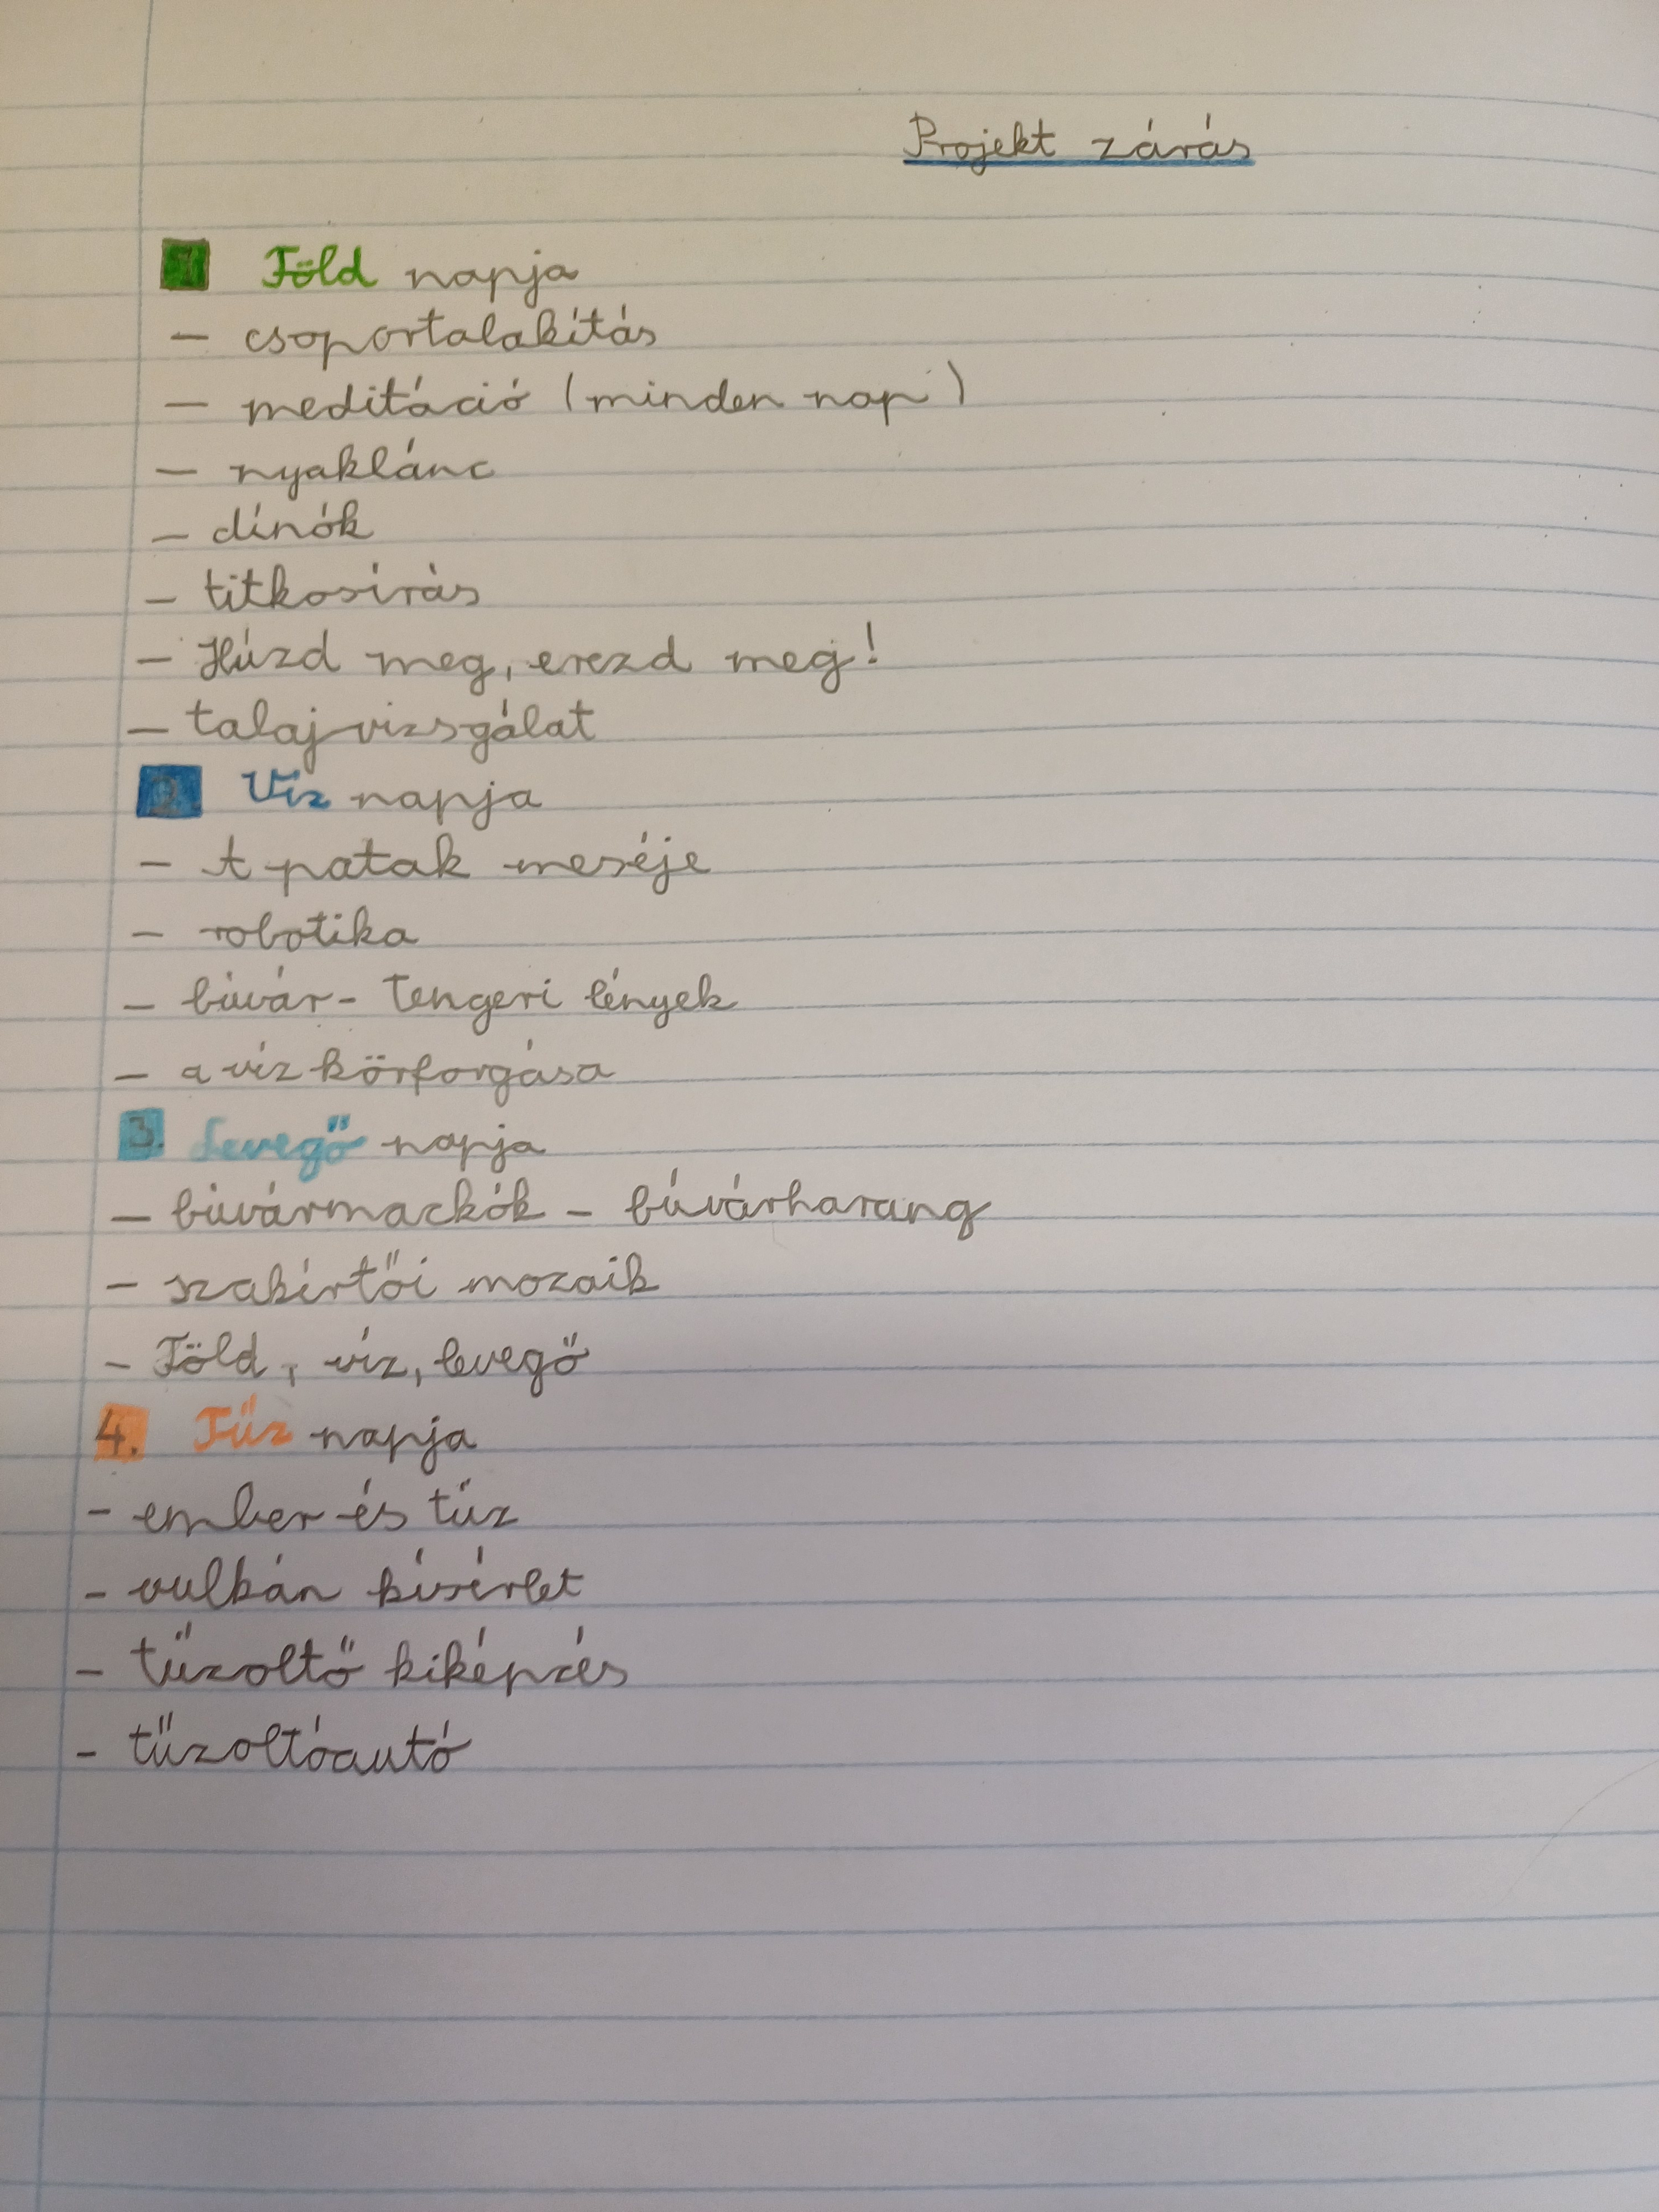 Projekt zárás
1 Föld napja
- csoportalakítás
- meditáció (minden nap)
- nyaklánc
- dínók
- titkosírás
- Húzd meg, erezd meg!
- talajvizsgálat
2. Víz napja
- A patak meséje
- robotika
- búvár - Tengeri lények
- a víz körforgása
3. Levegő napja
- búvármackók - búvárharang
- szakértői mozaik
- Föld, víz, levegő
4. Tűz napja
- ember és tűz
- vulkán kísérlet
- tűzoltő kiképzés
- tűzoltóautó